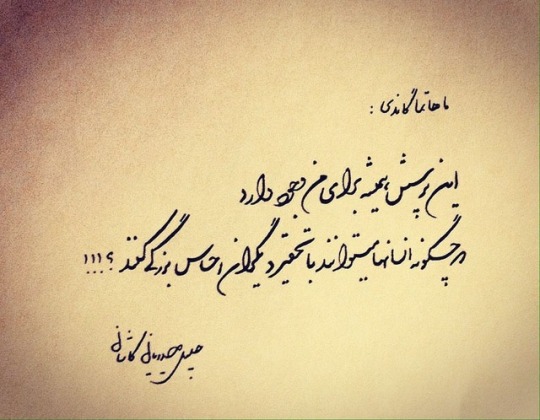 ماهاتما گاندی :
این پرسش همیشه برای من وجود دارد
چگونه انسانها میتوانند با تحقیر دیگران احساس بزرگی کنند ؟!!!
کاشانی